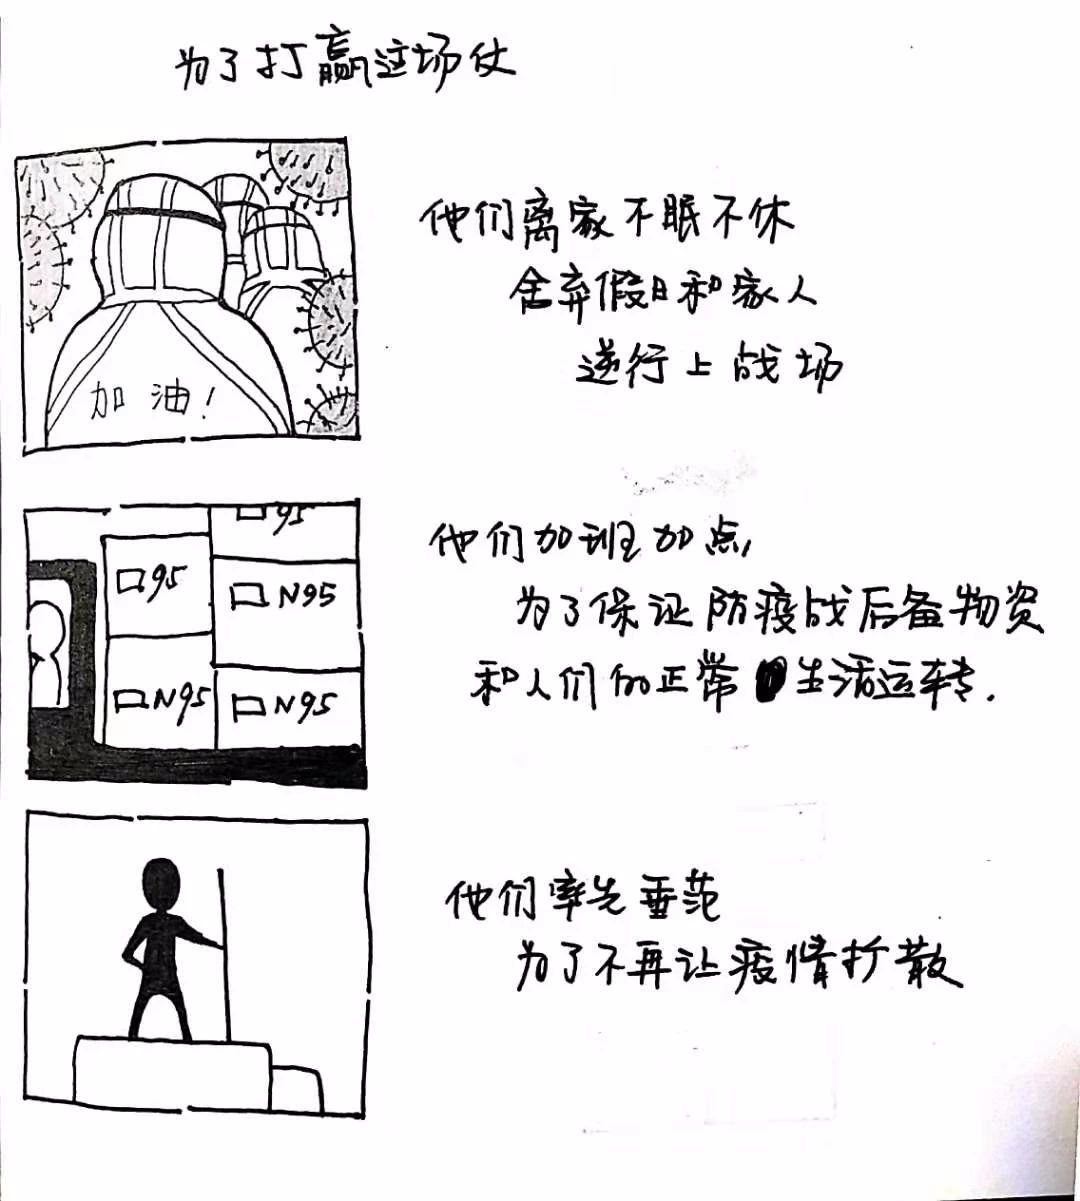 为了打赢这场仗
他们离家不眠不休
舍弃假日和家人
逆行上战场
加油！
95
95
N95
N95
N95
他们加班加点，
为了保证防疫战后备物资
和人们的正常生活运转．
他们率先垂范
为了不再让疫情扩散